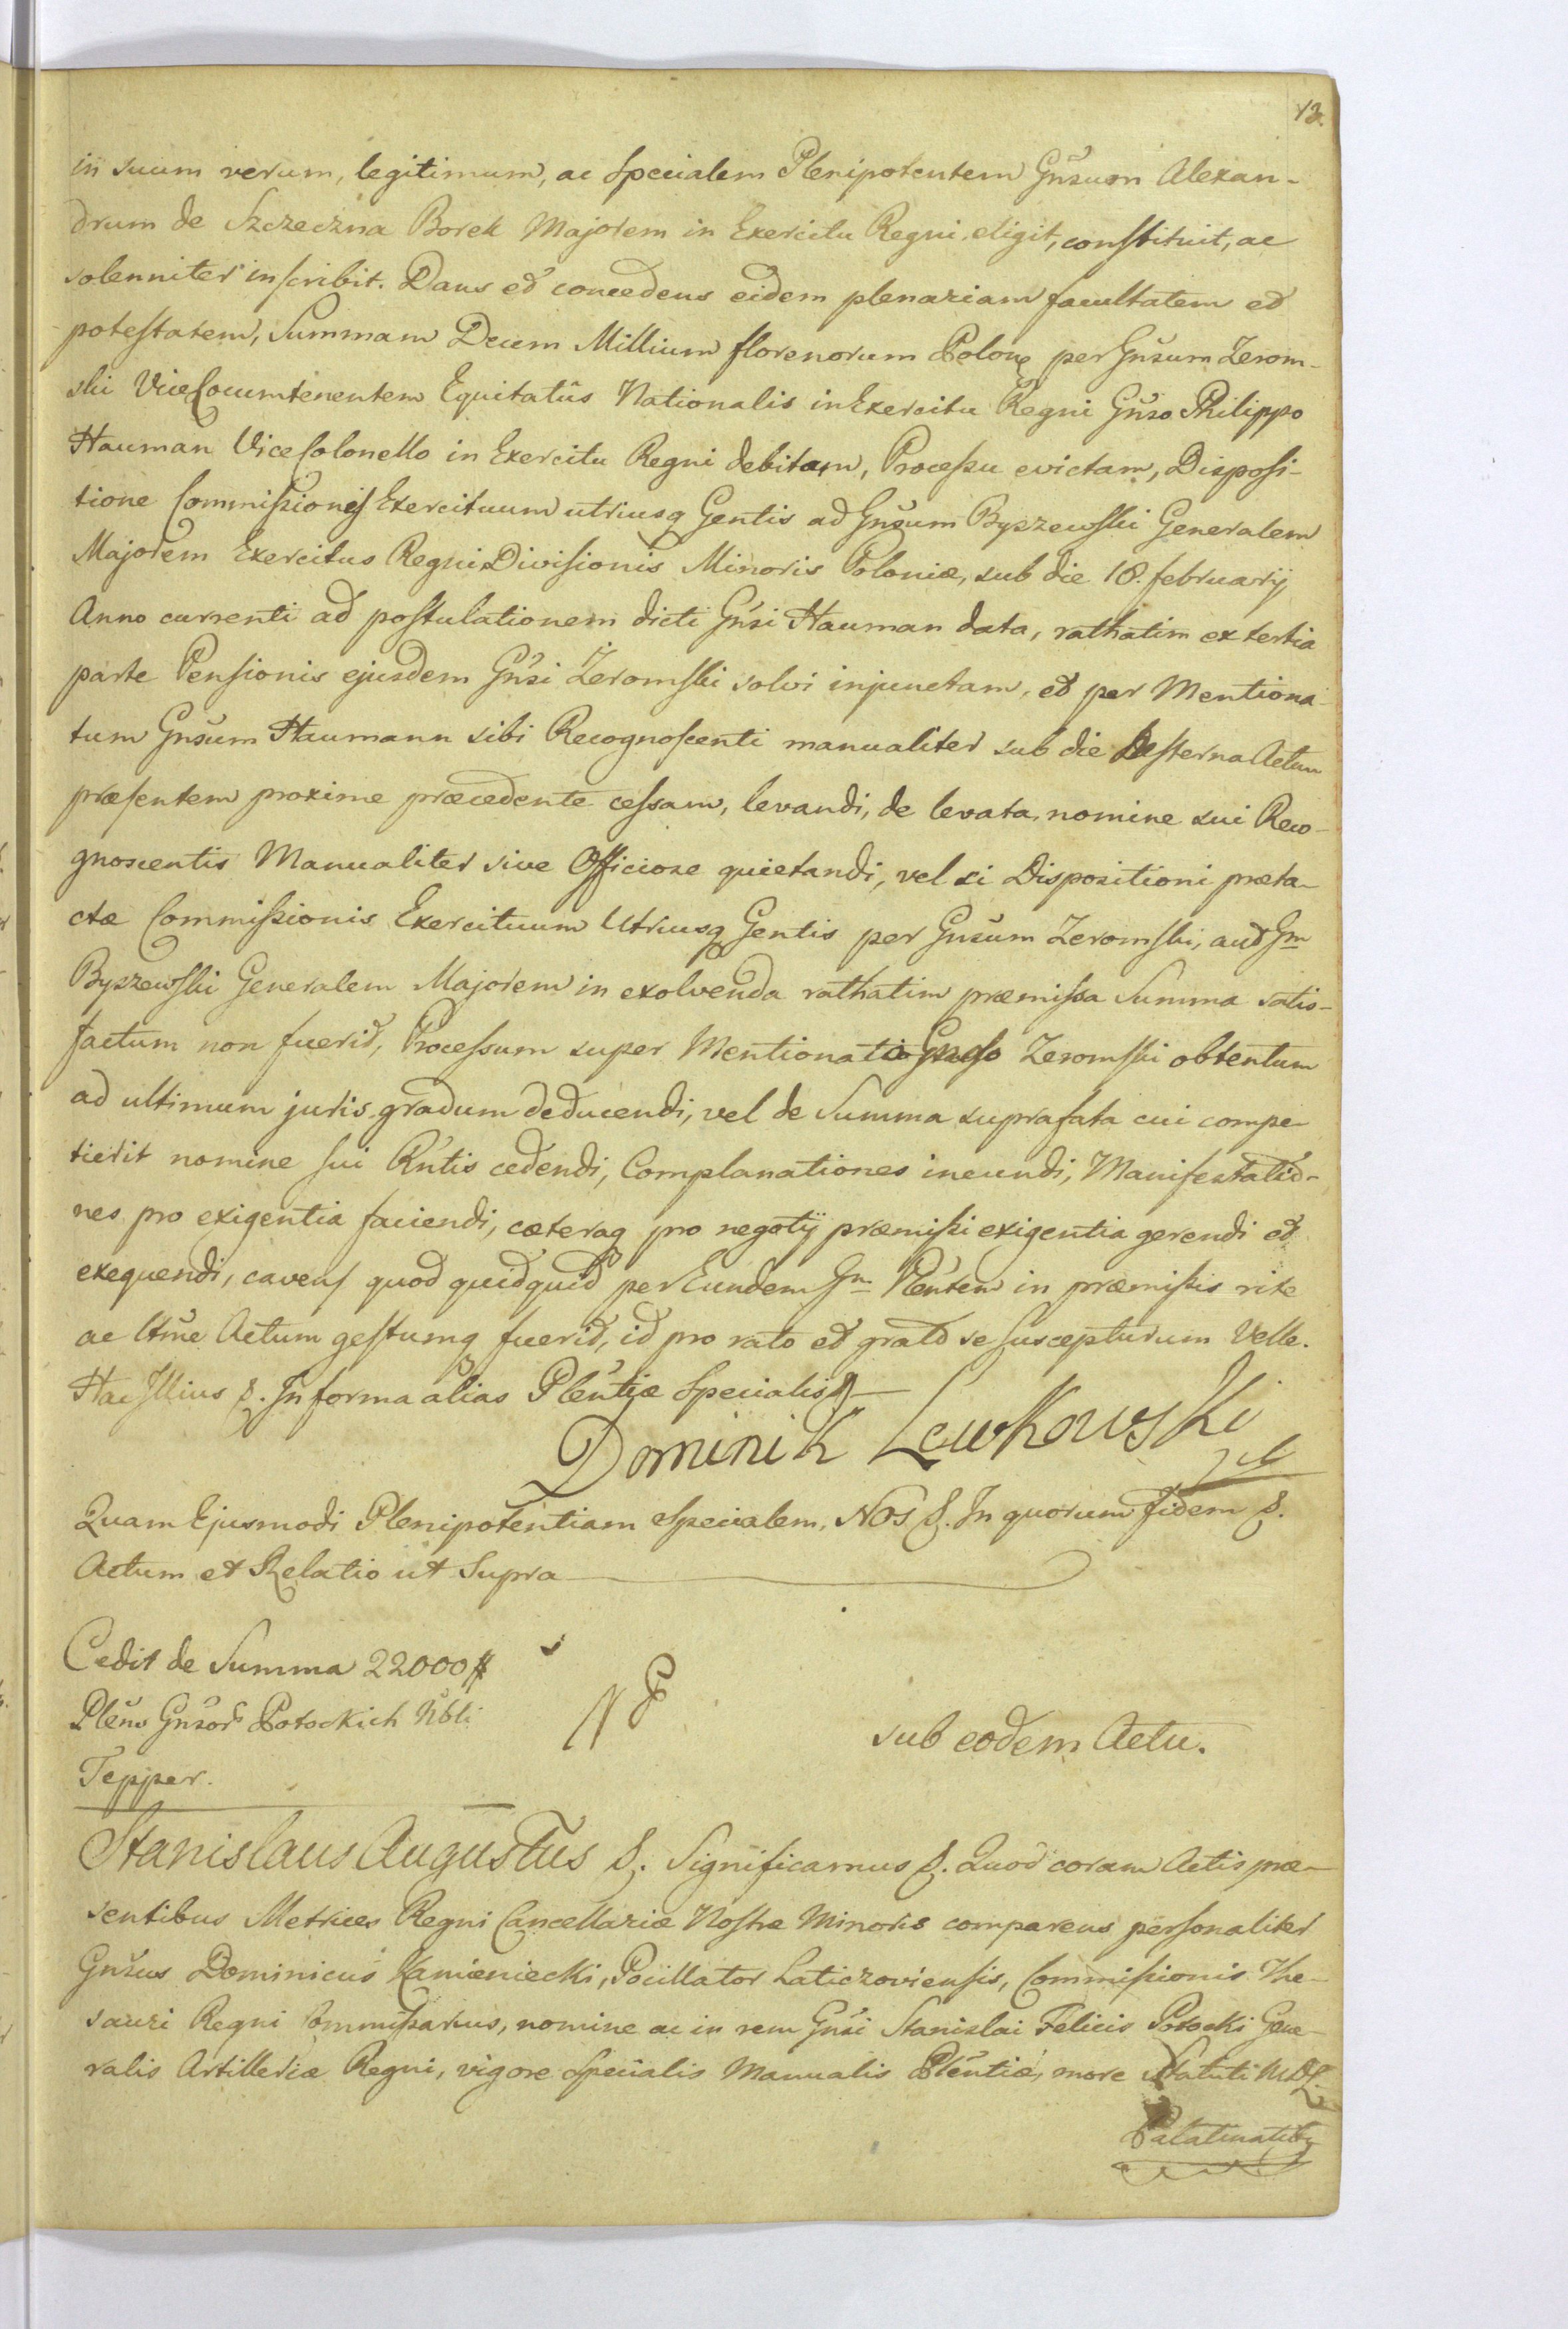 13.
in suum verum, legitimum, ac Specialem Plenipotentem Gnsum Alexan-
drum de Szczeczna Borek Majorem in Exercitu Regni eligit, constituit, ac
solenniter inscribit. Dans et concedens eidem plenariam facultatem et
potestatem, Summam Decem Millium florenorum Polon per Gnsum Zerom-
ski ViceLocumtenentem Equitatûs Nationalis in Exercitu Regni Gnso Philippo
Hauman ViceColonello in Exercitu Regni debitam, Processu evictam, Disposi-
tione Commissionis Exercituum utriusq Gentis ad Gnsum Byszewski Generalem
Majorem Exercitus Regni Divisionis Minoris Poloniæ, sub die 18. februarij
Anno currenti ad postulationem dicti Gnsi Hauman data, rathatim ex tertia
parte Pensionis ejusdem Gnsi Żeromski solvi injunctam, et per Mentiona-
tum Gnsum Haumann sibi Recognoscenti manualiter sub die hesterna Actum
præsentem proxime præcedente cessam, levandi, de levata, nomine sui Reco-
gnoscentis Manualiter sive Officiose quietandi, vel si Dispositioni præta-
ctæ Commissionis Exercituum Utriusq Gentis per Gnsum Zeromski, aut Gm
Byszewski Generalem Majorem in exolvenda rathatim præmissa Summa satis-
factum non fuerit, Processum super Mentionato Gnso Zeromski obtentum
ad ultimum juris gradum deducendi, vel de Summa suprafata cui compe-
tierit nomine sui Rntis cedendi, Complanationes ineundi, Manifestatio-
nes pro exigentia faciendi, cæteraq pro negotij præmissi exigentia gerendi et
exequendi, cavens quod quidquid per Eundem Gm Plentem in præmissis rite
ac ltme Actum gestumq fuerit, id pro rato et grato se suscepturum Velle.
Hac Illius &. In forma alias Plentiæ Specialis &
Dominik Lewkowski
Quam Ejusmodi Plenipotentiam Specialem, Nos &. In quorum fidem &.
Actum et Relatio ut Supra
Cedit de Summa 22000 #
Plens Gnsor Potockich Nbli
Tepper.
sub eodem Actu.
Stanislaus Augustus &. Significamus &. Quod coram Actis præ-
sentibus Metrices Regni Cancellariæ Nostræ Minoris comparens personaliter
Gnsus Dominicus Kamieniecki, Pocillator Laticzoviensis, Commissionis The-
sauri Regni Commissarius, nomine ac in rem Gnsi Stanislai Felicis Potocki Gene-
ralis Artilleriæ Regni, vigore Specialis Manualis Plentiæ, more Statuti M.D.L.
Palatinatib